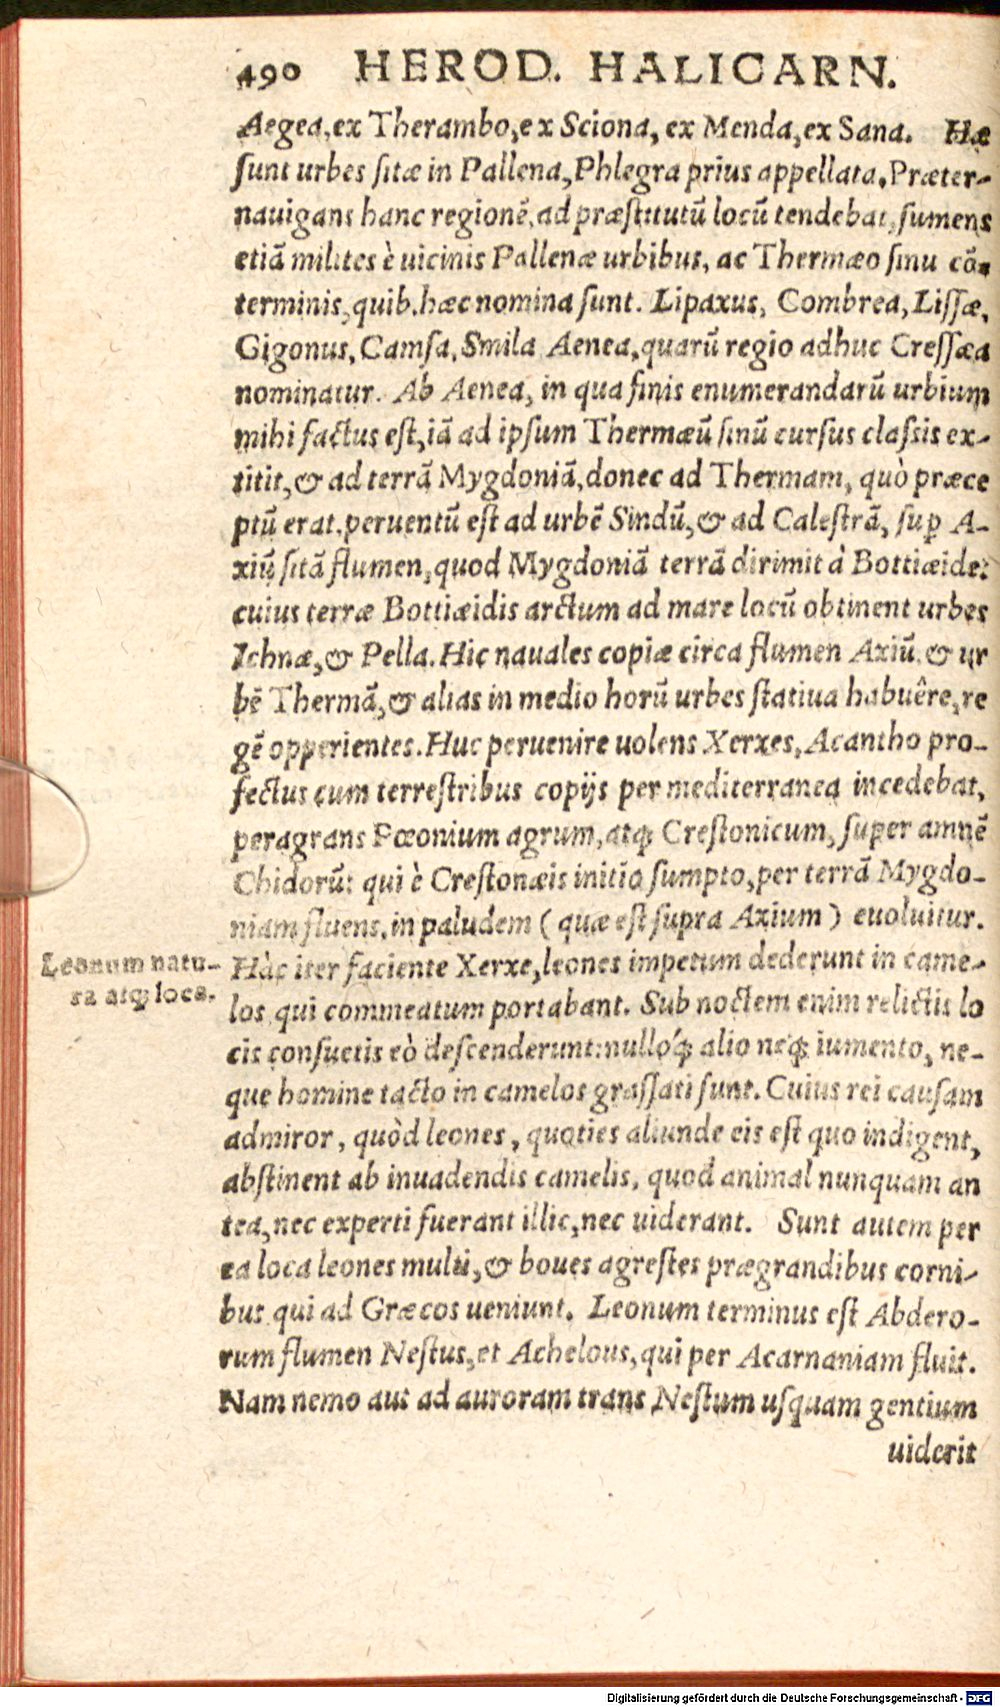 490 HEROD. HALICARN.
Aegea, ex Therambo, ex Sciona, ex Menda, ex Sana. Hæ
ſunt urbes ſitæ in Pallena, Phlegra prius appellata. Præter-
nauigans hanc regionē, ad præſtitutū locū tendebat, ſumens
etiā milites è uicinis Pallenæ urbibus, ac Thermæo ſinu cō-
terminis, quib. hæc nomina ſunt. Lipaxus, Combrea, Liſſæ,
Gigonus, Camſa, Smila Aenea, quarū regio adhuc Creſſæa
nominatur. Ab Aenea, in qua finis enumerandarū urbium
mihi factus eſt, iā ad ipſum Thermæū ſinū curſus claſsis ex-
titit, & ad terrā Mygdoniā, donec ad Thermam, quò præce
ptū erat, peruentū eſt ad urbē Sindū, & ad Caleſtrā, ſuꝑ A-
xiū ſitā flumen, quod Mygdoniā terrā dirimit à Bottiæide:
cuius terræ Bottiæidis arctum ad mare locū obtinent urbes
Ichnæ, & Pella. Hic nauales copiæ circa flumen Axiū, & ur
bē Thermā, & alias in medio horū urbes ſtatiua habuêre, re
gē opperientes. Huc peruenire uolens Xerxes, Acantho pro-
fectus cum terreſtribus copijs per mediterranea incedebat,
peragrans Pœonium agrum, atq; Creſtonicum, ſuper amnē
Chidorū: qui è Creſtonæis initio ſumpto, per terrā Mygdo-
niam fluens, in paludem (quæ eſt ſupra Axium) euoluitur.
Leonum natu-
ra atq; loca.
Hàc iter faciente Xerxe, leones impetum dederunt in came-
los qui commeatum portabant. Sub noctem enim relictis lo
cis conſuetis eò deſcenderunt: nulloq́; alio neq; iumento, ne-
que homine tacto in camelos graſſati ſunt. Cuius rei cauſam
admiror, quòd leones, quoties aliunde eis eſt quo indigent,
abſtinent ab inuadendis camelis, quod animal nunquam an
tea, nec experti fuerant illic, nec uiderant. Sunt autem per
ea loca leones multi, & boues agreſtes prægrandibus corni-
bus qui ad Græcos ueniunt. Leonum terminus eſt Abdero-
rum flumen Neſtus, et Achelous, qui per Acarnaniam fluit.
Nam nemo aut ad auroram trans Neſtum uſquam gentium
uiderit
Digitalisierung gefördert durch die Deutsche Forschungsgemeinschaft - DFG